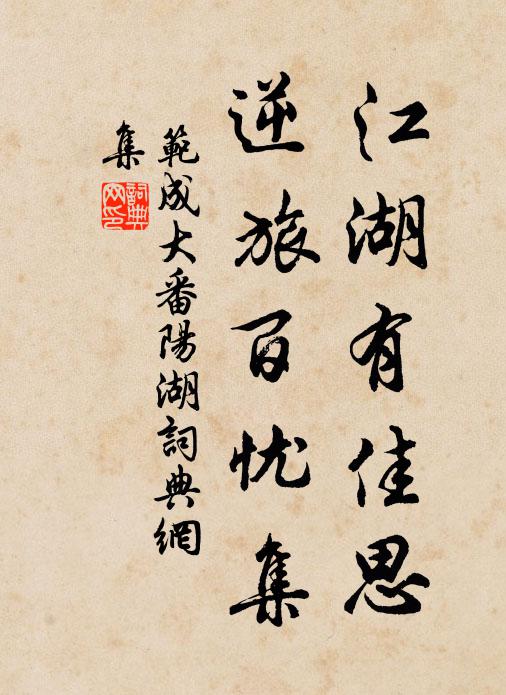 江湖有佳思
逆旅百忧集
範成大番陽湖詞典網
集
詞典网印